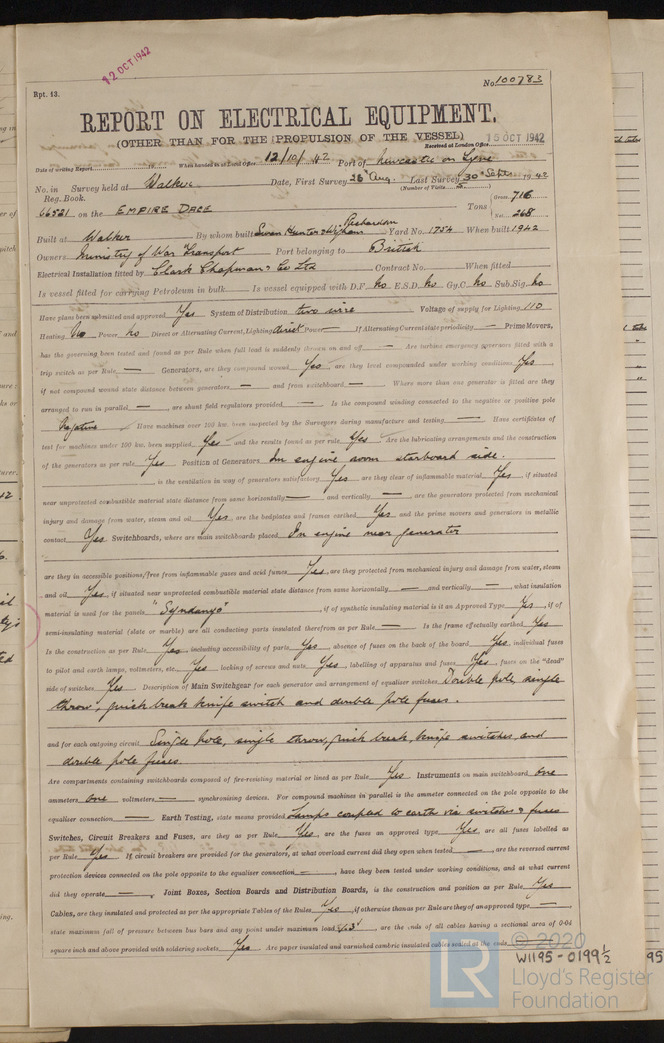 12 OCT 1942
No. 100783
Rpt. 13.
REPORT ON ELECTRICAL EQUIPMENT.
(OTHER THAN FOR THE PROPULSION OF THE VESSEL)
Received at London Office 15 OCT 1942
Date of writing Report 19 When handed in at Local Office 12/10/42 Port of Newcastle on Tyne
No. in Survey held at Walker Date, First Survey 28 Aug. Last Survey 30 Sept 1942
Reg. Book. (Number of Visits 5)
66521 on the EMPIRE DACE Tons Gross 716 Net 268
Built at Walker By whom built Swan Hunter & Wigham Richardson Yard No. 1754 When built 1942
Owners Ministry of War Transport Port belonging to British
Electrical Installation fitted by Clark Chapman & Co Ltd Contract No. — When fitted
Is vessel fitted for carrying Petroleum in bulk — Is vessel equipped with D.F. No E.S.D. No Gy.C. No Sub.Sig. No
Have plans been submitted and approved Yes System of Distribution two wire Voltage of supply for Lighting 110
Heating No Power No Direct or Alternating Current, Lighting direct Power — If Alternating Current state periodicity — Prime Movers,
has the governing been tested and found as per Rule when full load is suddenly thrown on and off — Are turbine emergency governors fitted with a
trip switch as per Rule — Generators, are they compound wound Yes are they level compounded under working conditions Yes
if not compound wound state distance between generators — and from switchboard — Where more than one generator is fitted are they
arranged to run in parallel — , are shunt field regulators provided — Is the compound winding connected to the negative or positive pole
Negative Have machines over 100 kw. been inspected by the Surveyors during manufacture and testing — Have certificates of
test for machines under 100 kw. been supplied Yes and the results found as per rule Yes Are the lubricating arrangements and the construction
of the generators as per rule Yes Position of Generators In engine room starboard side.
, is the ventilation in way of generators satisfactory Yes are they clear of inflammable material Yes if situated
near unprotected combustible material state distance from same horizontally — and vertically — , are the generators protected from mechanical
injury and damage from water, steam and oil Yes are the bedplates and frames earthed Yes and the prime movers and generators in metallic
contact Yes Switchboards, where are main switchboards placed In engine near generator
are they in accessible positions, free from inflammable gases and acid fumes Yes, are they protected from mechanical injury and damage from water, steam
and oil Yes if situated near unprotected combustible material state distance from same horizontally — and vertically — , what insulation
material is used for the panels "Syndanyo" , if of synthetic insulating material is it an Approved Type Yes, if of
semi-insulating material (slate or marble) are all conducting parts insulated therefrom as per Rule — Is the frame effectually earthed Yes
Is the construction as per Rule Yes, including accessibility of parts Yes, absence of fuses on the back of the board Yes, individual fuses
to pilot and earth lamps, voltmeters, etc. Yes locking of screws and nuts Yes, labelling of apparatus and fuses Yes, fuses on the "dead"
side of switches Yes. Description of Main Switchgear for each generator and arrangement of equaliser switches Double pole, single
throw, quick break knife switch and double pole fuses.
and for each outgoing circuit Single pole, single throw, quick break, knife switches and
double pole fuses.
Are compartments containing switchboards composed of fire-resisting material or lined as per Rule Yes Instruments on main switchboard one
ammeters one voltmeters — synchronising devices. For compound machines in parallel is the ammeter connected on the pole opposite to the
equaliser connection — Earth Testing, state means provided Lamps coupled to earth via switches & fuses
Switches, Circuit Breakers and Fuses, are they as per Rule Yes, are the fuses an approved type Yes are all fuses labelled as
per Rule Yes If circuit breakers are provided for the generators, at what overload current did they open when tested — , are the reversed current
protection devices connected on the pole opposite to the equaliser connection — , have they been tested under working conditions, and at what current
did they operate — , Joint Boxes, Section Boards and Distribution Boards, is the construction and position as per Rule Yes
Cables, are they insulated and protected as per the appropriate Tables of the Rules Yes, if otherwise than as per Rule are they of an approved type —
state maximum fall of pressure between bus bars and any point under maximum load , are the ends of all cables having a sectional area of 0·04
square inch and above provided with soldering sockets Yes. Are paper insulated and varnished cambric insulated cables sealed at the ends
© 2020
W1195-0199½
LR Lloyd's Register
Foundation